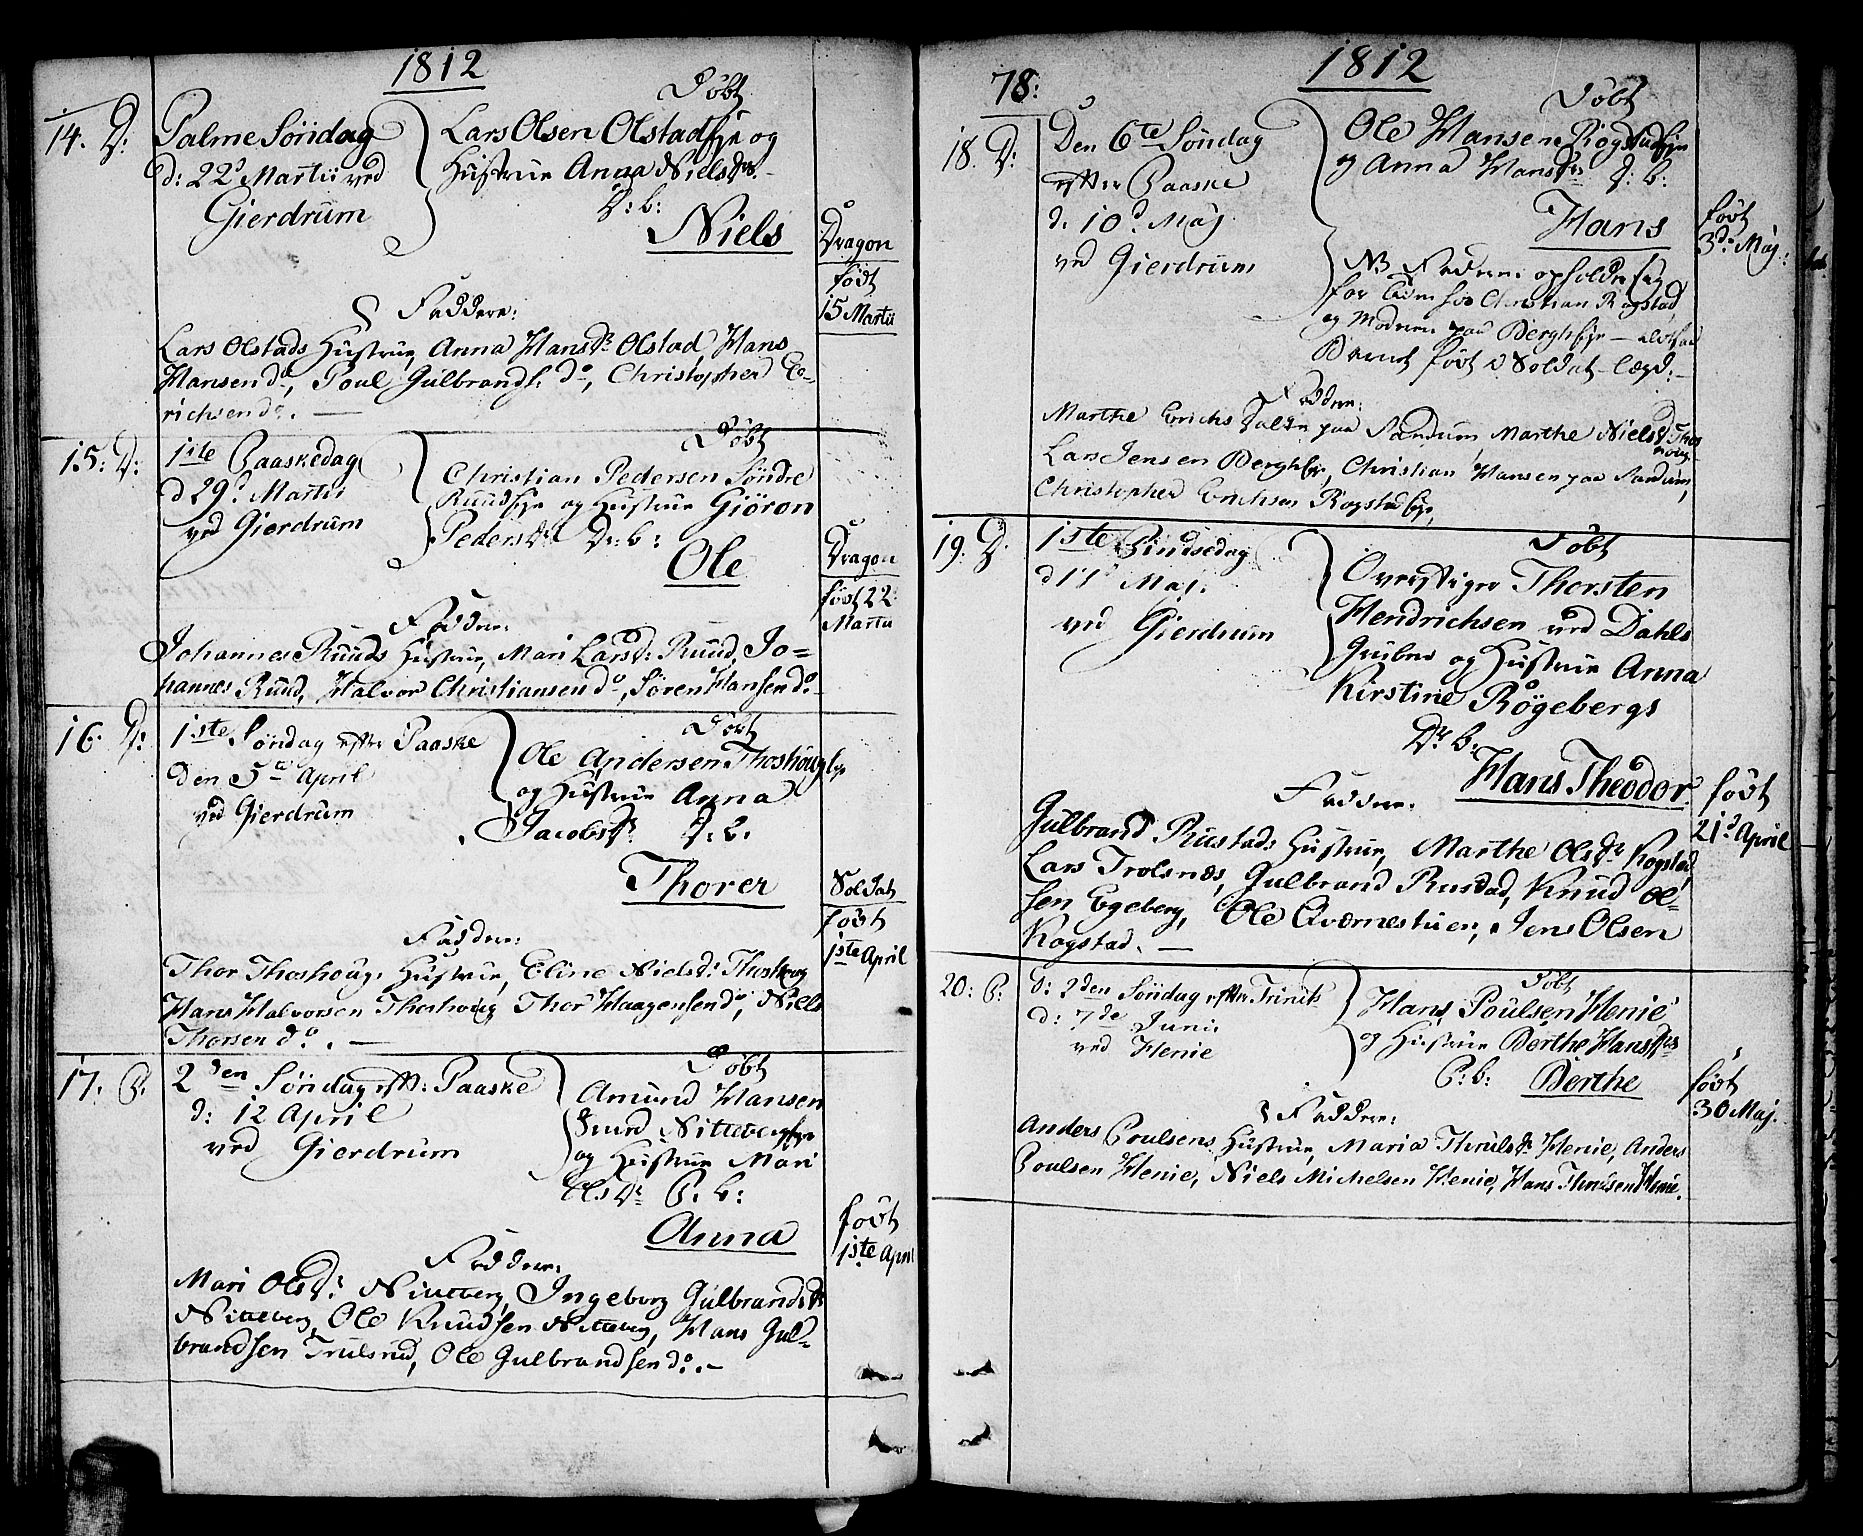 1812
14. D:
Palme Søndag
d: 22d Martii ved
Gierdrum
Døbt
Lars Olsen Olstadeje og
Hustrue Anna Nielsdr.
D: b:
Niels
Dragon
født
15 Martii
Faddere:
Lars Olstads Hustrue, Anna Hansdr Olstad, Hans
Hansen do, Poul Gulbrands. do, Christopher E=
richsen do. —
15: D:
1ste Paaskedag
d 29d Martii
ved Gierdrum
Døbt
Christian Pedersen Søndre
Ruudseje og Hustrue Giöron
Pedersdr D: b:
Ole
Dragon
født 22
Martii
Faddere:
Johannes Ruuds Hustrue, Mari Larsd: Ruud, Jo=
hannes Ruud, Halvor Christiansen do, Søren Hansen do.
16. D:
1ste Søndag efter Paaske
Den 5te April
ved Gierdrum
Døbt
Ole Andersen Thoshougeje
og Hustrue Anna
Jacobsdr D: b:
Thorer
Soldat
født
1ste April
Faddere:
Thor Thoshougs Hustrue, Eline Nielsd: Thoshoug
Hans Halvorsen Thoshoug Thor Haagensen do, Niels
Thorsen do. —
17: P:
2den Søndag eft: Paaske
d: 12 April
ved Gierdrum
Døbt
Amund Hansen
Nittebergeje
og Hustrue Mari
Olsdr P: b:
Anna
født
1ste April
Faddere:
Mari Olsdr Nitteberg, Ingeborg Gulbrandsdr
Nitteberg, Ole Knudsen Nitteberg, Hans Gul=
brandsen Trulsrud, Ole Gulbrandsen do. —
78:
1812
18. D:
Den 6te Søndag
efter Paaske
d: 10d Maj
ved Gierdrum
Døbt
Ole Hansen Rogstadeje
og Anna Hansdr D: b:
Hans
født
3d Maj.
NB Faderen opholder sig
for hos Christian Rogstad
og Moderen paa Bergheje —
Barnet født i Soldat-lægd: —
Faddere:
Marthe Erichs Datter paa Sandum Marthe Nielsd: Thos
houg
Lars Jensen Bergheje, Christian Hansen paa Sandum,
Christopher Erichsen Rogstadeje,
19: D.
1ste Pindsedag
d 17d Maj.
ved Gierdrum
Døbt
Overstiger Thorsten
Hendrichsen ved Dahls
Gruber og Hustrue Anna
Kirstine Røgebergs
Dr. b:
Hans Theodor.
født
21d April
Faddere.
Gulbrand Rustads Hustrue, Marthe Olsdr Kogstad,
Lars Trolsnæs, Gulbrand Rustad, Knud Ol=
sen Egeberg, Ole Qværnestuen, Jens Olsen
Kogstad. —
20: P:
d: 2den Søndag efter Trinit:
d: 7de Junii
ved Henie
Døbt
Hans Poulsen Henie
og Hustrue Berthe Hansdr
P: b: Berthe
født
30 Maj.
Faddere:
Anders Poulsens Hustrue, Maria Thrulsdr Henie, Anders
Poulsen Henie, Niels Michelsen Henie, Hans Henie.